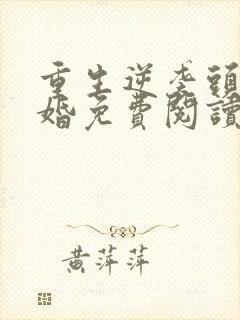 重生逆袭頭
婚免費閱讀
黃萍萍